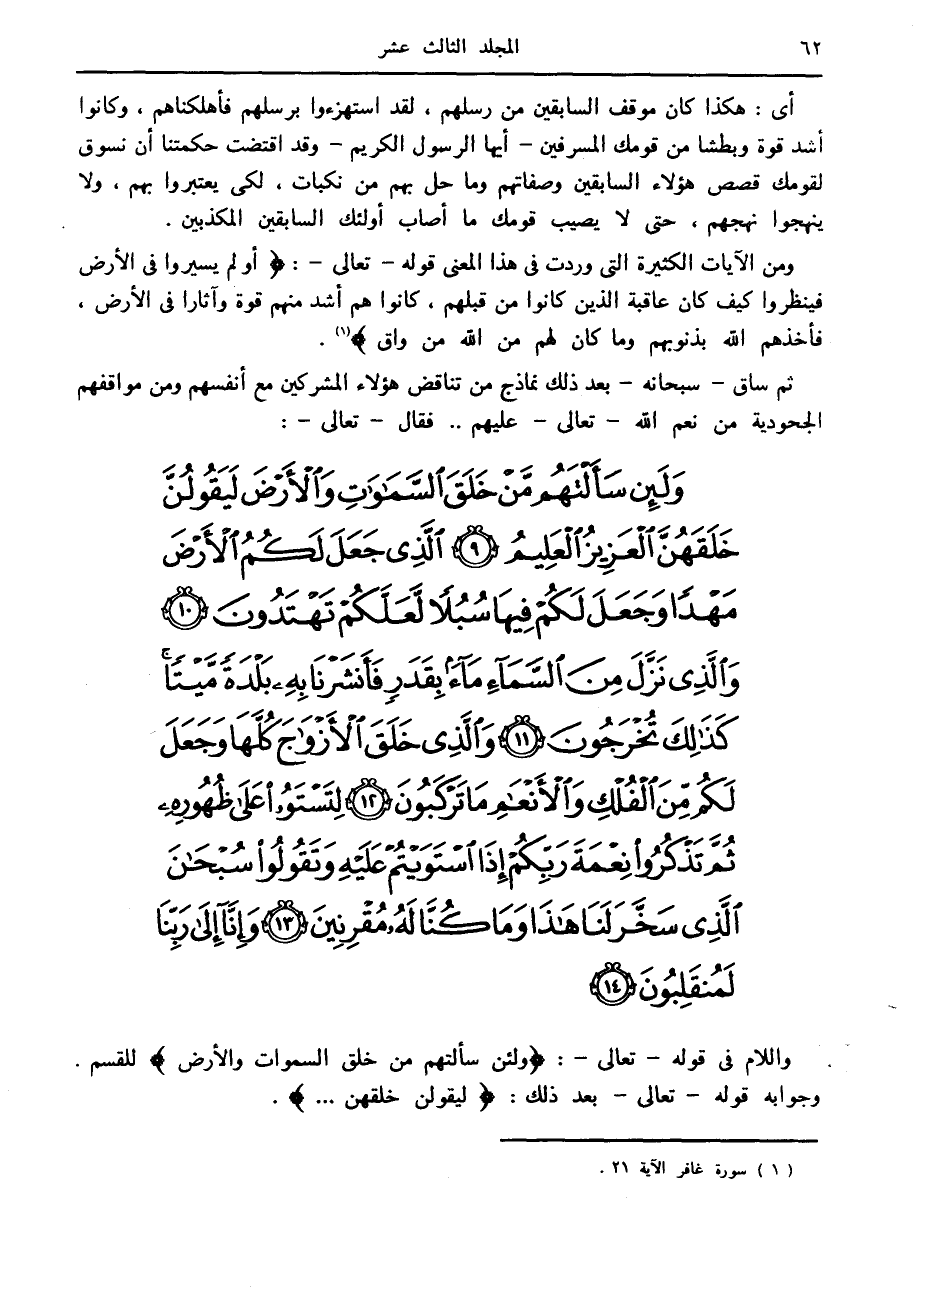 ٦٢ المجلد الثالث عشر
أى : هكذا كان موقف السابقين من رسلهم ، لقد استهزءوا برسلهم فأهلكناهم ، وكانوا
أشد قوة وبطشا من قومك المسرفين – أيها الرسول الكريم – وقد اقتضت حكمتنا أن نسوق
لقومك قصص هؤلاء السابقين وصفاتهم وما حل بهم من نكبات ، لكى يعتبروا بهم ، ولا
ينهجوا نهجهم ، حتى لا يصيب قومك ما أصاب أولئك السابقين المكذبين .
ومن الآيات الكثيرة التى وردت فى هذا المعنى قوله – تعالى – : ﴿ أو لم يسيروا فى الأرض
فينظروا كيف كان عاقبة الذين كانوا من قبلهم ، كانوا هم أشد منهم قوة وآثارا فى الأرض ،
فأخذهم الله بذنوبهم وما كان لهم من الله من واق ﴾(١) .
ثم ساق – سبحانه – بعد ذلك نماذج من تناقض هؤلاء المشركين مع أنفسهم ومن مواقفهم
الجحودية من نعم الله – تعالى – عليهم .. فقال – تعالى – :
وَلَئِن سَأَلْتَهُم مَّنْ خَلَقَ ٱلسَّمَٰوَٰتِ وَٱلْأَرْضَ لَيَقُولُنَّ
خَلَقَهُنَّ ٱلْعَزِيزُ ٱلْعَلِيمُ ۝٩ ٱلَّذِى جَعَلَ لَكُمُ ٱلْأَرْضَ
مَهْدًا وَجَعَلَ لَكُمْ فِيهَا سُبُلًا لَّعَلَّكُمْ تَهْتَدُونَ ۝١٠
وَٱلَّذِى نَزَّلَ مِنَ ٱلسَّمَآءِ مَآءًۢ بِقَدَرٍ فَأَنشَرْنَا بِهِۦ بَلْدَةً مَّيْتًا ۚ
كَذَٰلِكَ تُخْرَجُونَ ۝١١ وَٱلَّذِى خَلَقَ ٱلْأَزْوَٰجَ كُلَّهَا وَجَعَلَ
لَكُم مِّنَ ٱلْفُلْكِ وَٱلْأَنْعَٰمِ مَا تَرْكَبُونَ ۝١٢ لِتَسْتَوُۥا۟ عَلَىٰ ظُهُورِهِۦ
ثُمَّ تَذْكُرُوا۟ نِعْمَةَ رَبِّكُمْ إِذَا ٱسْتَوَيْتُمْ عَلَيْهِ وَتَقُولُوا۟ سُبْحَٰنَ
ٱلَّذِى سَخَّرَ لَنَا هَٰذَا وَمَا كُنَّا لَهُۥ مُقْرِنِينَ ۝١٣ وَإِنَّآ إِلَىٰ رَبِّنَا
لَمُنقَلِبُونَ ۝١٤
واللام فى قوله – تعالى – : ﴿ولئن سألتهم من خلق السموات والأرض ﴾ للقسم .
وجوابه قوله – تعالى – بعد ذلك : ﴿ ليقولن خلقهن ... ﴾ .
( ١ ) سورة غافر الآية ٢١ .